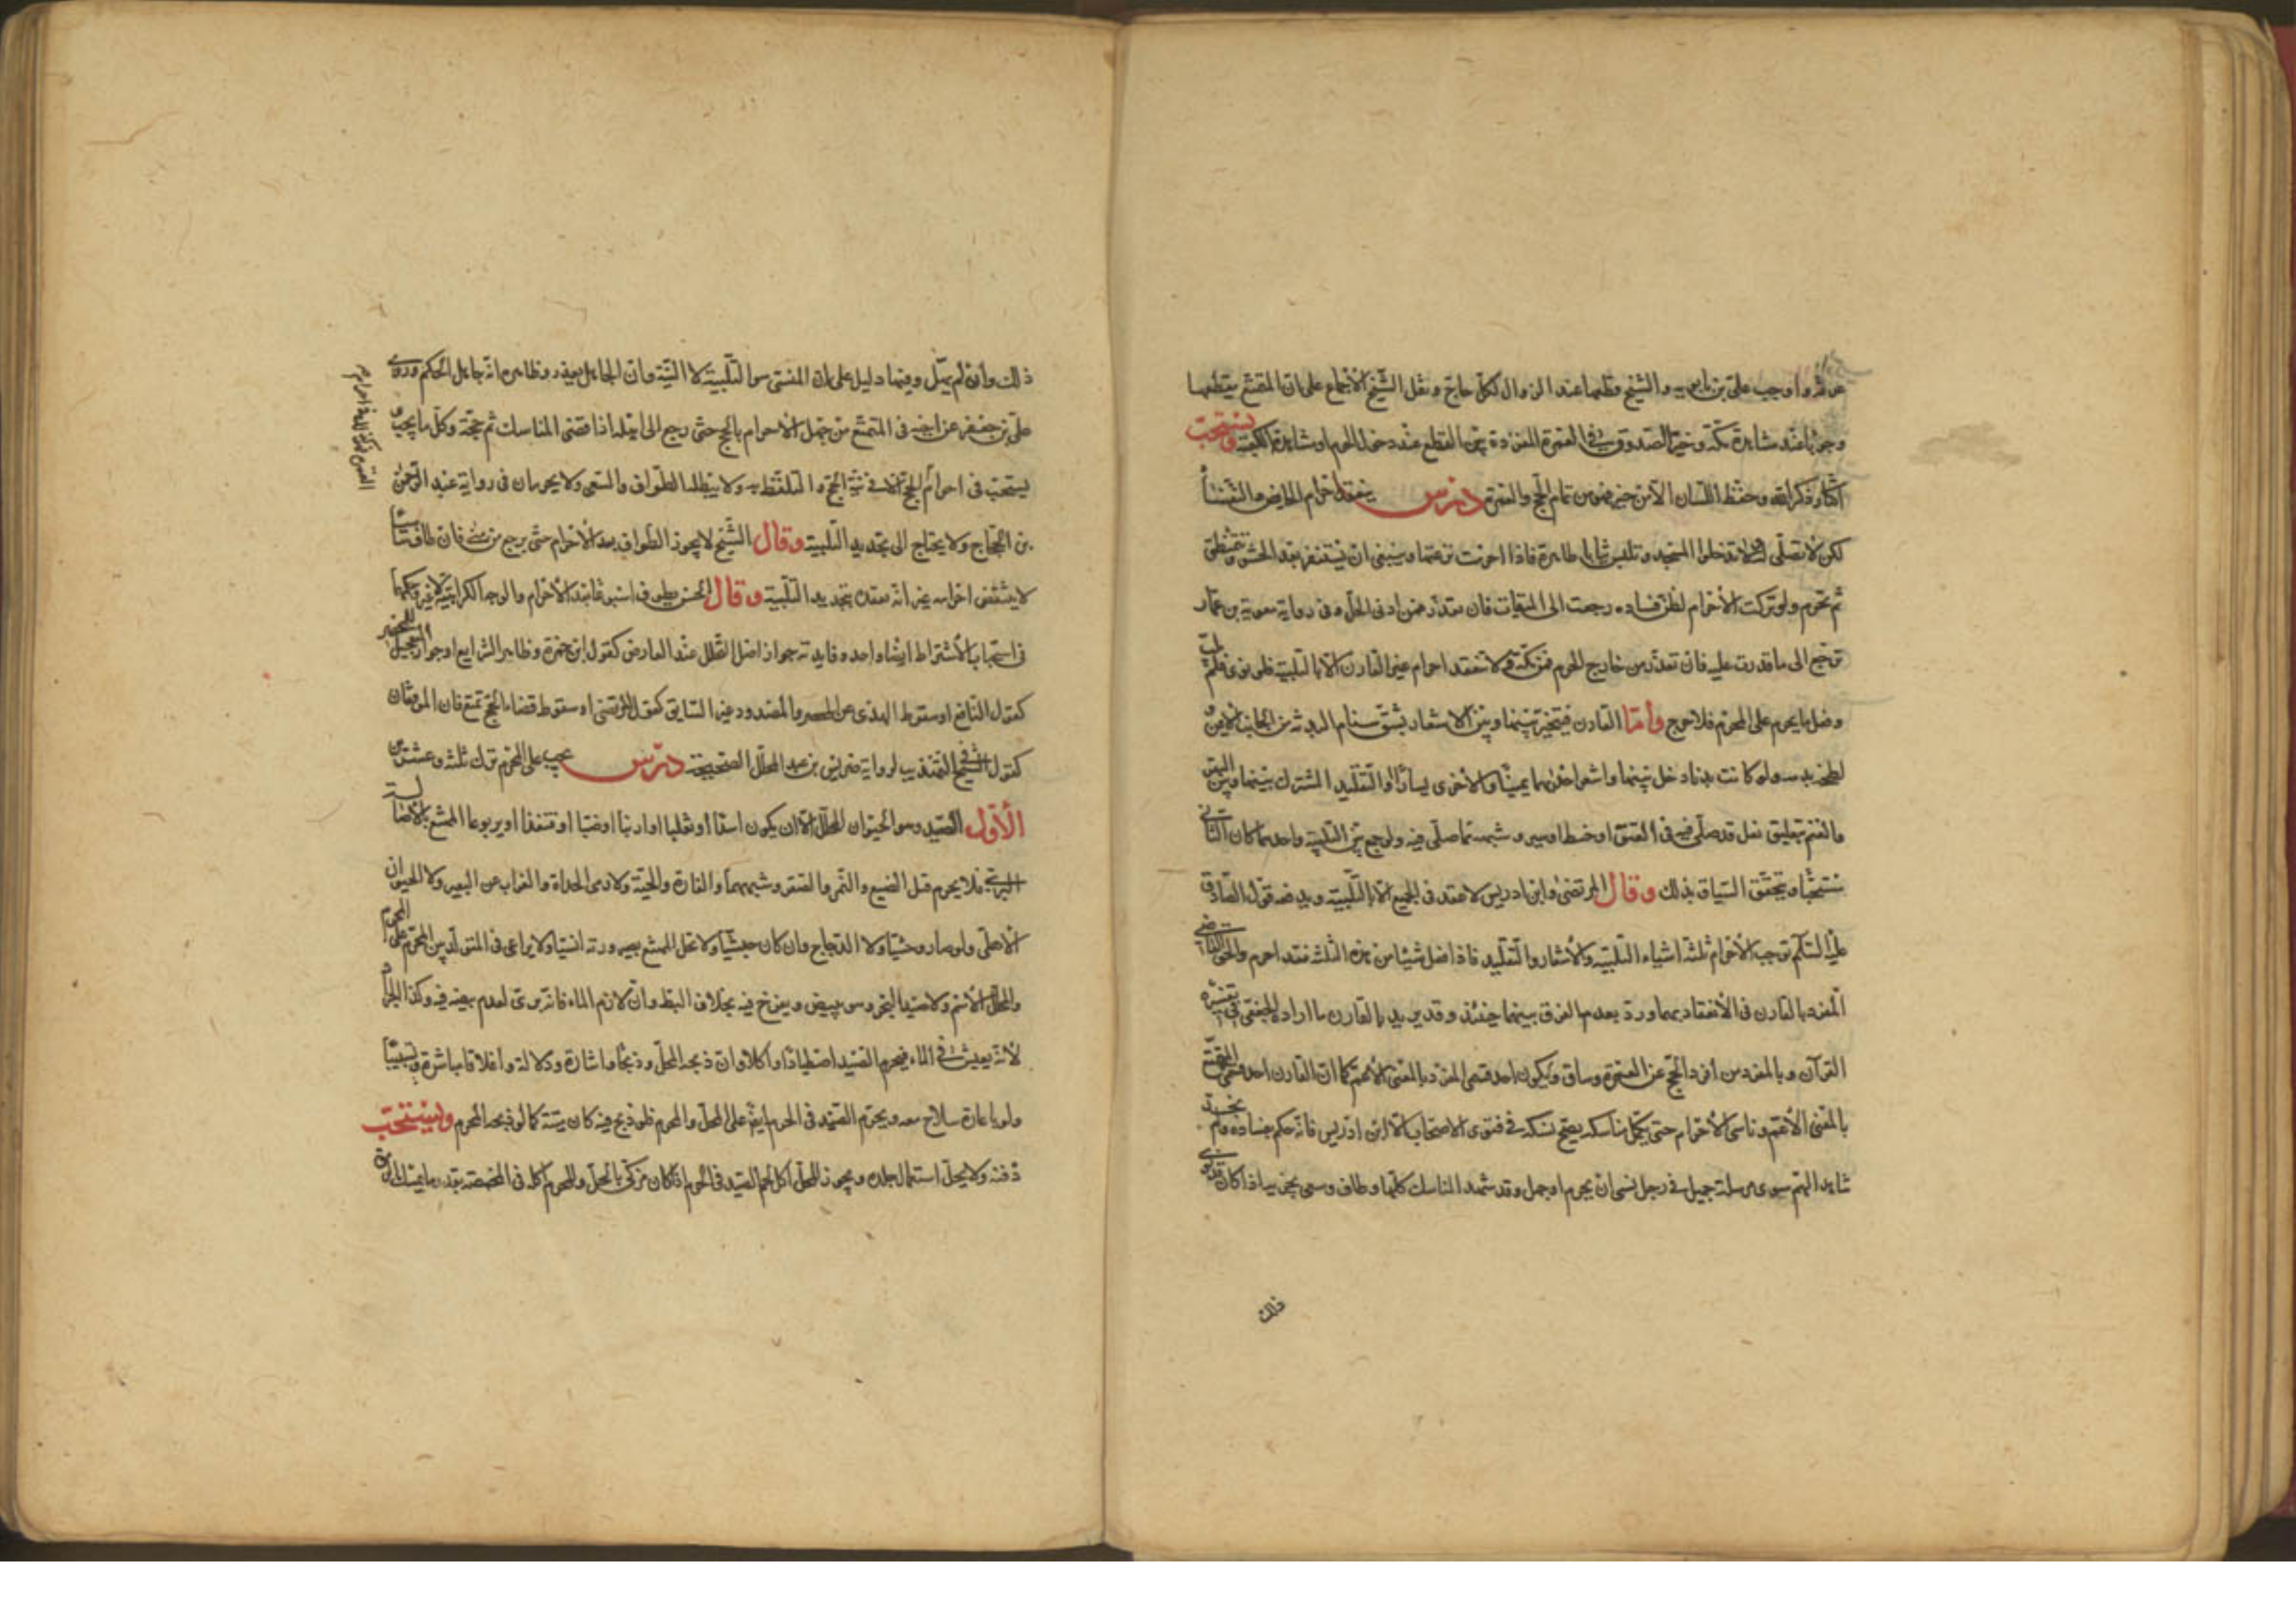 عرفة واوجب علي بن بابويه والشيخ قطعها عند الزوال لكل حاج ونقل الشيخ الاجماع على ان المتمتع يقطعها
وجوبا عند مشاهدة مكة وخير الصدوق في العمرة المفردة بين القطع عند دخول الحرم او مشاهدة الكعبة ويستحب
اكثار ذكر الله وحفظ اللسان الا من خير فهو من تمام الحج والعمرة درس ينعقد احرام الحايض والنفساء
لكن لا تصلي له ولا تدخل المسجد وتلبس ثيابا طاهرة فاذا احرمت نزعتها وينبغي ان تستثفر بعد الحشو وتتمنطق
ثم تحرم ولو تركت الاحرام لظن فساده رجعت الى الميقات فان تعذر فمن ادنى الحل وفي رواية معوية بن عمار
ترجع الى ما قدرت عليه فان تعذر من خارج الحرم فمن مكة ولا ينعقد احرام غير القارن الا بالتلبية فلو نوى فلم يلب
وفعل ما يحرم على المحرم فلا حرج وأما القارن فيتخير بينها وبين الاشعار بشق سنام البدنة من الجانب الايمن و
لطخه بدمه ولو كانت بدنا دخل بينها واشعر احديهما يمينا والاخرى يسارا والتقليد المشترك بينها وبين البقر
والغنم بتعليق نعل قد صلى فيه في العنق او خيط او سير وشبهه مما صلى فيه ولو جمع بين التلبية واحدهما كان الثاني
مستحبا ويتحقق السياق بذلك وقال المرتضى وابن ادريس لا عقد في الجميع الا بالتلبية ويدفعه قول الصادق
عليه السلام توجب الاحرام ثلثة اشياء التلبية والاشعار والتقليد فاذا فعل شيئا من هذه الثلثة فقد احرم والحق
المفرد بالقارن في الانعقاد بهما ورد بعدم الفرق بينهما حينئذ وقد يريد بالقارن ما اراد الجعفي في تفسيره
القرآن وبالمفرد من افرد الحج عن العمرة وساق ويكون احد قسمي المفرد بالمعنى الاعم كما ان القارن احد قسمي المتمتع
بالمعنى الاعم وناسي الاحرام حتى يكمل مناسكه يصح نسكه في فتوى الاصحاب الا ابن ادريس فانه حكم بفساده ولم نجد
شاهدا لهم سوى مرسلة جميل في رجل نسي ان يحرم او جهل وقد شهد المناسك كلها وطاف وسعى يجزيه اذا كان قد نوى
ذلك
ذلك وان لم يهل وفيها دليل على ان المنسي هو التلبية لا النية وان الجاهل يعذر وظاهره انه جاهل الحكم وروى
علي بن جعفر عن اخيه في المتمتع من جهل الاحرام بالحج حتى رجع الى اهله اذا قضى المناسك تم حجه وكل ما يجب و
يستحب في احرام الحج الا في نية الحج والتلفظ به ولا يبطله الطواف والسعي ولا يحرمان في رواية عبد الرحمن
بن الحجاج ولا يحتاج الى تجديد التلبية وقال الشيخ لا يجوز الطواف بعد الاحرام حتى يرجع من منى فان طاف ساهيا
لا ينتقض احرامه غير انه يعقده بتجديد التلبية وقال الحسن يطوف اسبوعا بعد الاحرام والوجه الكراهية لا غير وحكمهما
في استحباب الاشتراط ايضا واحد وفايدته جواز اصل التحلل عند العارض كقول ابن حمزة وظاهر الشرايع او جواز تعجيل التحلل للمحصر
كقول النافع او سقوط الهدي عن المحصر والمصدود غير السايق كقول المرتضى او سقوط قضاء الحج تمتع فان الموقفان
كقول الشيخ في التهذيب لرواية ضريس بن عبد الملك الصحيحة درس يجب على المحرم ترك ثلثة وعشرين
الأول الصيد وهو الحيوان المحلل الا ان يكون اسدا او ثعلبا او ارنبا او ضبا او قنفذا او يربوعا الممتنع بالاصالة
البري فلا يحرم قتل الضبع والنمر والصقر وشبهها والفارة والحية ولا رمي الحداة والغراب عن البعير ولا الحيوان
الاهلي ولو صار وحشيا ولا الدجاج وان كان حبشيا ولا تحل الممتنع بصيرورته انسيا ولا يراعى في المتولد بين المحرم
والمحلل الاسم ولا صيد البحر وهو يبيض ويفرخ فيه بخلاف البط وان لازم الماء فانه بري لعدم بيضه فيه وكذا الجراد
لانه يعيش في الماء فيحرم الصيد اصطيادا واكلا وان ذبحه المحل وذبحا واشارة ودلالة واغلاقا مباشرة وتسبيبا
ولو باعارة سلاح معه ويحرم الصيد في الحرم ايضا على المحل والمحرم فلو ذبح فيه كان ميتة كما لو ذبحه المحرم ويستحب
دفنه ولا يحل استعمال جلده ويجوز للمحل اكل لحم الصيد في الحرم اذا كان مذكى بالحل وللمحرم اكله في المخمصة بقدر ما يمسك الرمق